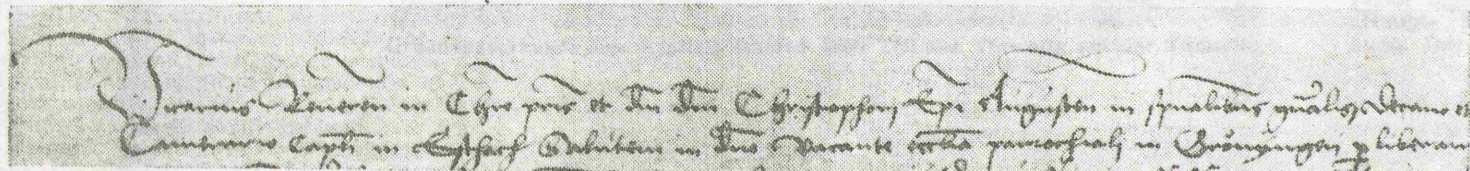 Vicarius Reveren in Chro pris et dm dm Christophori Epi Augusten in spualibus gnalis Decano et
Camerario Capli in Esthach Salutem in dno Vacante ecclia parrochiali in Grönyngen p liberam